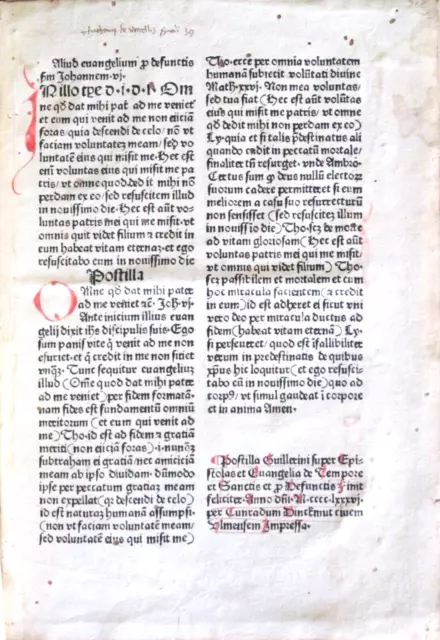 Aliud euangelium ꝓ defunctis
ẜm Johannem·vj·
IN illo tꝑe d·i·d·s· Om
ne qd̛ dat mihi pat ad me veniet
et eum qui venit ad me non eiciā
foras quia descendi de celo/ nō vt
faciam voluntatez meam/sed vo
luntatē eius qui misit me· Hec est
em̄ voluntas eius qui misit me pa
tris/ vt omne quod dedit mihi nō
perdam ex eo/ sed resuscitem illud
in nouissimo die· Hec est aūt vo/
luntas patris mei qui me misit· vt
omnis quit videt filium ⁊ credit in
eum habeat vitam eternaz· et ego
resuscitabo eum in nouissimo die
Postilla
OMne qd̛ dat mihi pater
ad me veniet ⁊c̄· Joh·vj·
Ante inicium illius euan
gelij dixit ihs̄ discipulis suis· Ego
sum panis vite q̇ venit ad me non
esuriet· et q̇ credit in me non sitiet
vnq̄ꝫ· Tunc sequitur euangeliuz
illud (Om̄e quod dat mihi pater
ad me veniet) per fidem formatā·
nam fides est fundamentū omniū
meritorum (et eum qui venit ad
me) Tho· id est ad fidem ⁊ gratiā
meriti (non eiciā foras)·i· nunqꝫ
subtraham ei gratiā/ nec amiciciā
meam ab ipso diuidam· dūmodo
ipse per peccatum gratiaz meam
non expellat (qꝛ descendi de celo)
id est naturaz humanā assumpsi·
(non vt faciam voluntatē meam/
sed voluntatē eius qui misit me)
Tho· ecce per omnia voluntatem
humanā subiecit volūtati diuine
Math·xxvj· Non mea voluntas/
sed tua fiat (Hec est aūt volūtas
eius qui misit me patris/ vt omne
qd̛ dedit mihi non perdam ex eo)
Ly· quia et si talis p̄destinatus ali
quando cadit in peccatū mortale/
finaliter tn̄ resurget· vnde Ambro·
Certus sum ꝙ deus nullū electoꝝ
suorum cadere permitteret si eum
meliorem a casu suo resurrecturū
non sensisset (sed resuscitez illum
in nouissīo die) Tho· scꝫ de morte
ad vitam gloriosam (Hec est aūt
voluntas patris mei qui me misit/
vt omnis qui videt filium) Tho·
scꝫ passibilem et mortalem et cum
hoc miracula facientem (⁊ credit
in eum) id est adheret ei sicut vni
vero deo per miracula ductus ad
fidem (habeat vitam eternā) Ly·
si perseueret/ quod est īfallibiliter
verum in predestinatis de quibus
xp̄us hic loquitur (et ego resusci/
tabo eū in nouissimo die) quo ad
corpꝰ/ vt simul gaudeat ī corpore
et in anima Amen·
¶Postilla Guillerini super Epi
stolas et Euangelia de Tempore
et Sanctis et ꝓ Defunctis Finit
feliciter· Anno dn̄i·M·cccc·lxxxvj·
per Cunradum Dinckmut ciuem
Vlmensem Impressa·